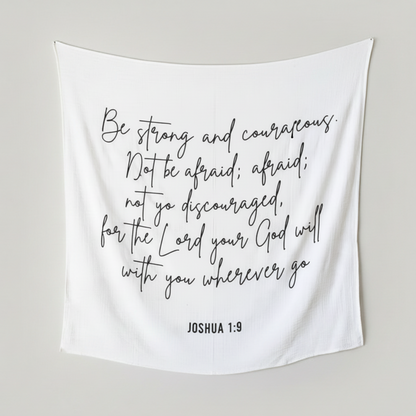 Be strong and courageous.
Not be afraid; afraid;
not yo discouraged,
for the Lord your God will
with you wherever go
JOSHUA 1:9